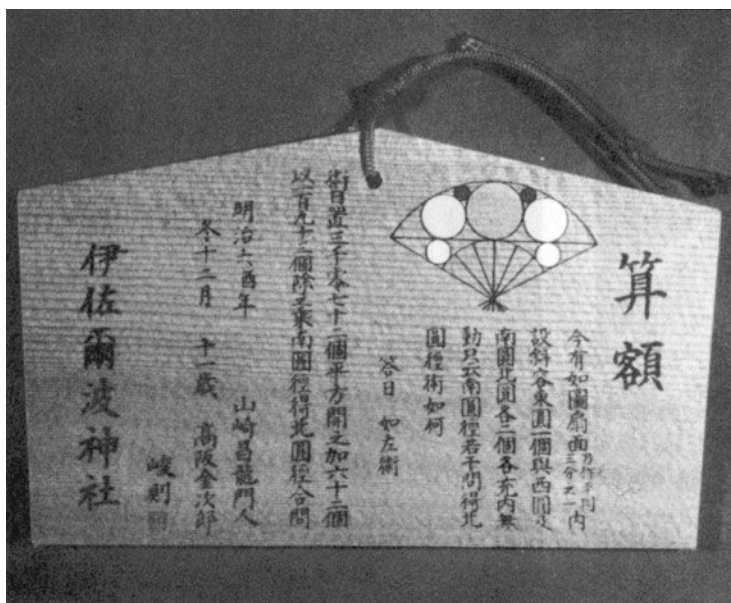 算額
今有如圖扇面三分之一内
設斜容東圓一個與西圓
南圓北圓各二個各充内無
動只云南圓徑若干問得北
圓徑術如何
答曰 如左術
術曰置三千零七十二個平方開之加六十二個
以一百九十三個除之乘南圓徑得北圓徑合問
明治六酉年 山崎昌龍門人
冬十二月 十一歳 高阪金次郎
峻則
伊佐爾波神社